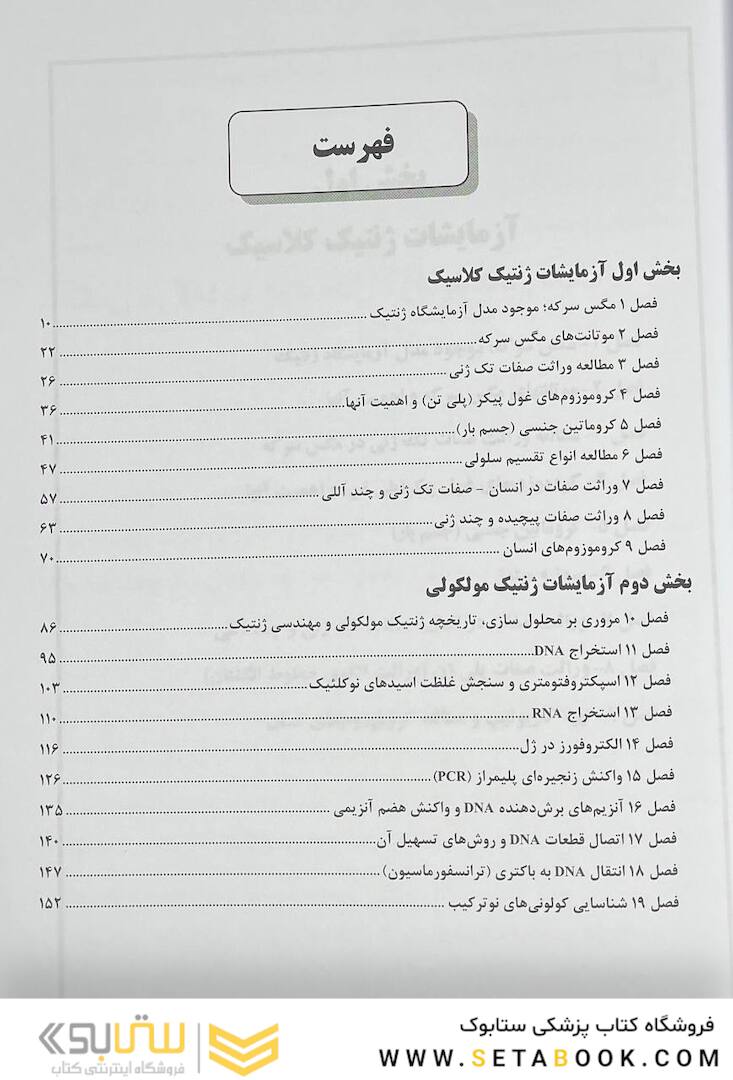 فهرست
بخش اول آزمایشات ژنتیک کلاسیک
فصل ۱ مگس سرکه؛ موجود مدل آزمایشگاه ژنتیک ۱۰
فصل ۲ موتانت‌های مگس سرکه ۲۲
فصل ۳ مطالعه وراثت صفات تک ژنی ۲۶
فصل ۴ کروموزوم‌های غول پیکر (پلی تن) و اهمیت آنها ۳۶
فصل ۵ کروماتین جنسی (جسم بار) ۴۱
فصل ۶ مطالعه انواع تقسیم سلولی ۴۷
فصل ۷ وراثت صفات در انسان - صفات تک ژنی و چند آللی ۵۷
فصل ۸ وراثت صفات پیچیده و چند ژنی ۶۳
فصل ۹ کروموزوم‌های انسان ۷۰
بخش دوم آزمایشات ژنتیک مولکولی
فصل ۱۰ مروری بر محلول سازی، تاریخچه ژنتیک مولکولی و مهندسی ژنتیک ۸۶
فصل ۱۱ استخراج DNA ۹۵
فصل ۱۲ اسپکتروفتومتری و سنجش غلظت اسیدهای نوکلئیک ۱۰۳
فصل ۱۳ استخراج RNA ۱۱۰
فصل ۱۴ الکتروفورز در ژل ۱۱۶
فصل ۱۵ واکنش زنجیره‌ای پلیمراز (PCR) ۱۲۶
فصل ۱۶ آنزیم‌های برش‌دهنده DNA و واکنش هضم آنزیمی ۱۳۵
فصل ۱۷ اتصال قطعات DNA و روش‌های تسهیل آن ۱۴۰
فصل ۱۸ انتقال DNA به باکتری (ترانسفورماسیون) ۱۴۷
فصل ۱۹ شناسایی کولونی‌های نوترکیب ۱۵۲
فروشگاه کتاب پزشکی ستابوک
WWW.SETABOOK.COM
ستابوک
فروشگاه اینترنتی کتاب